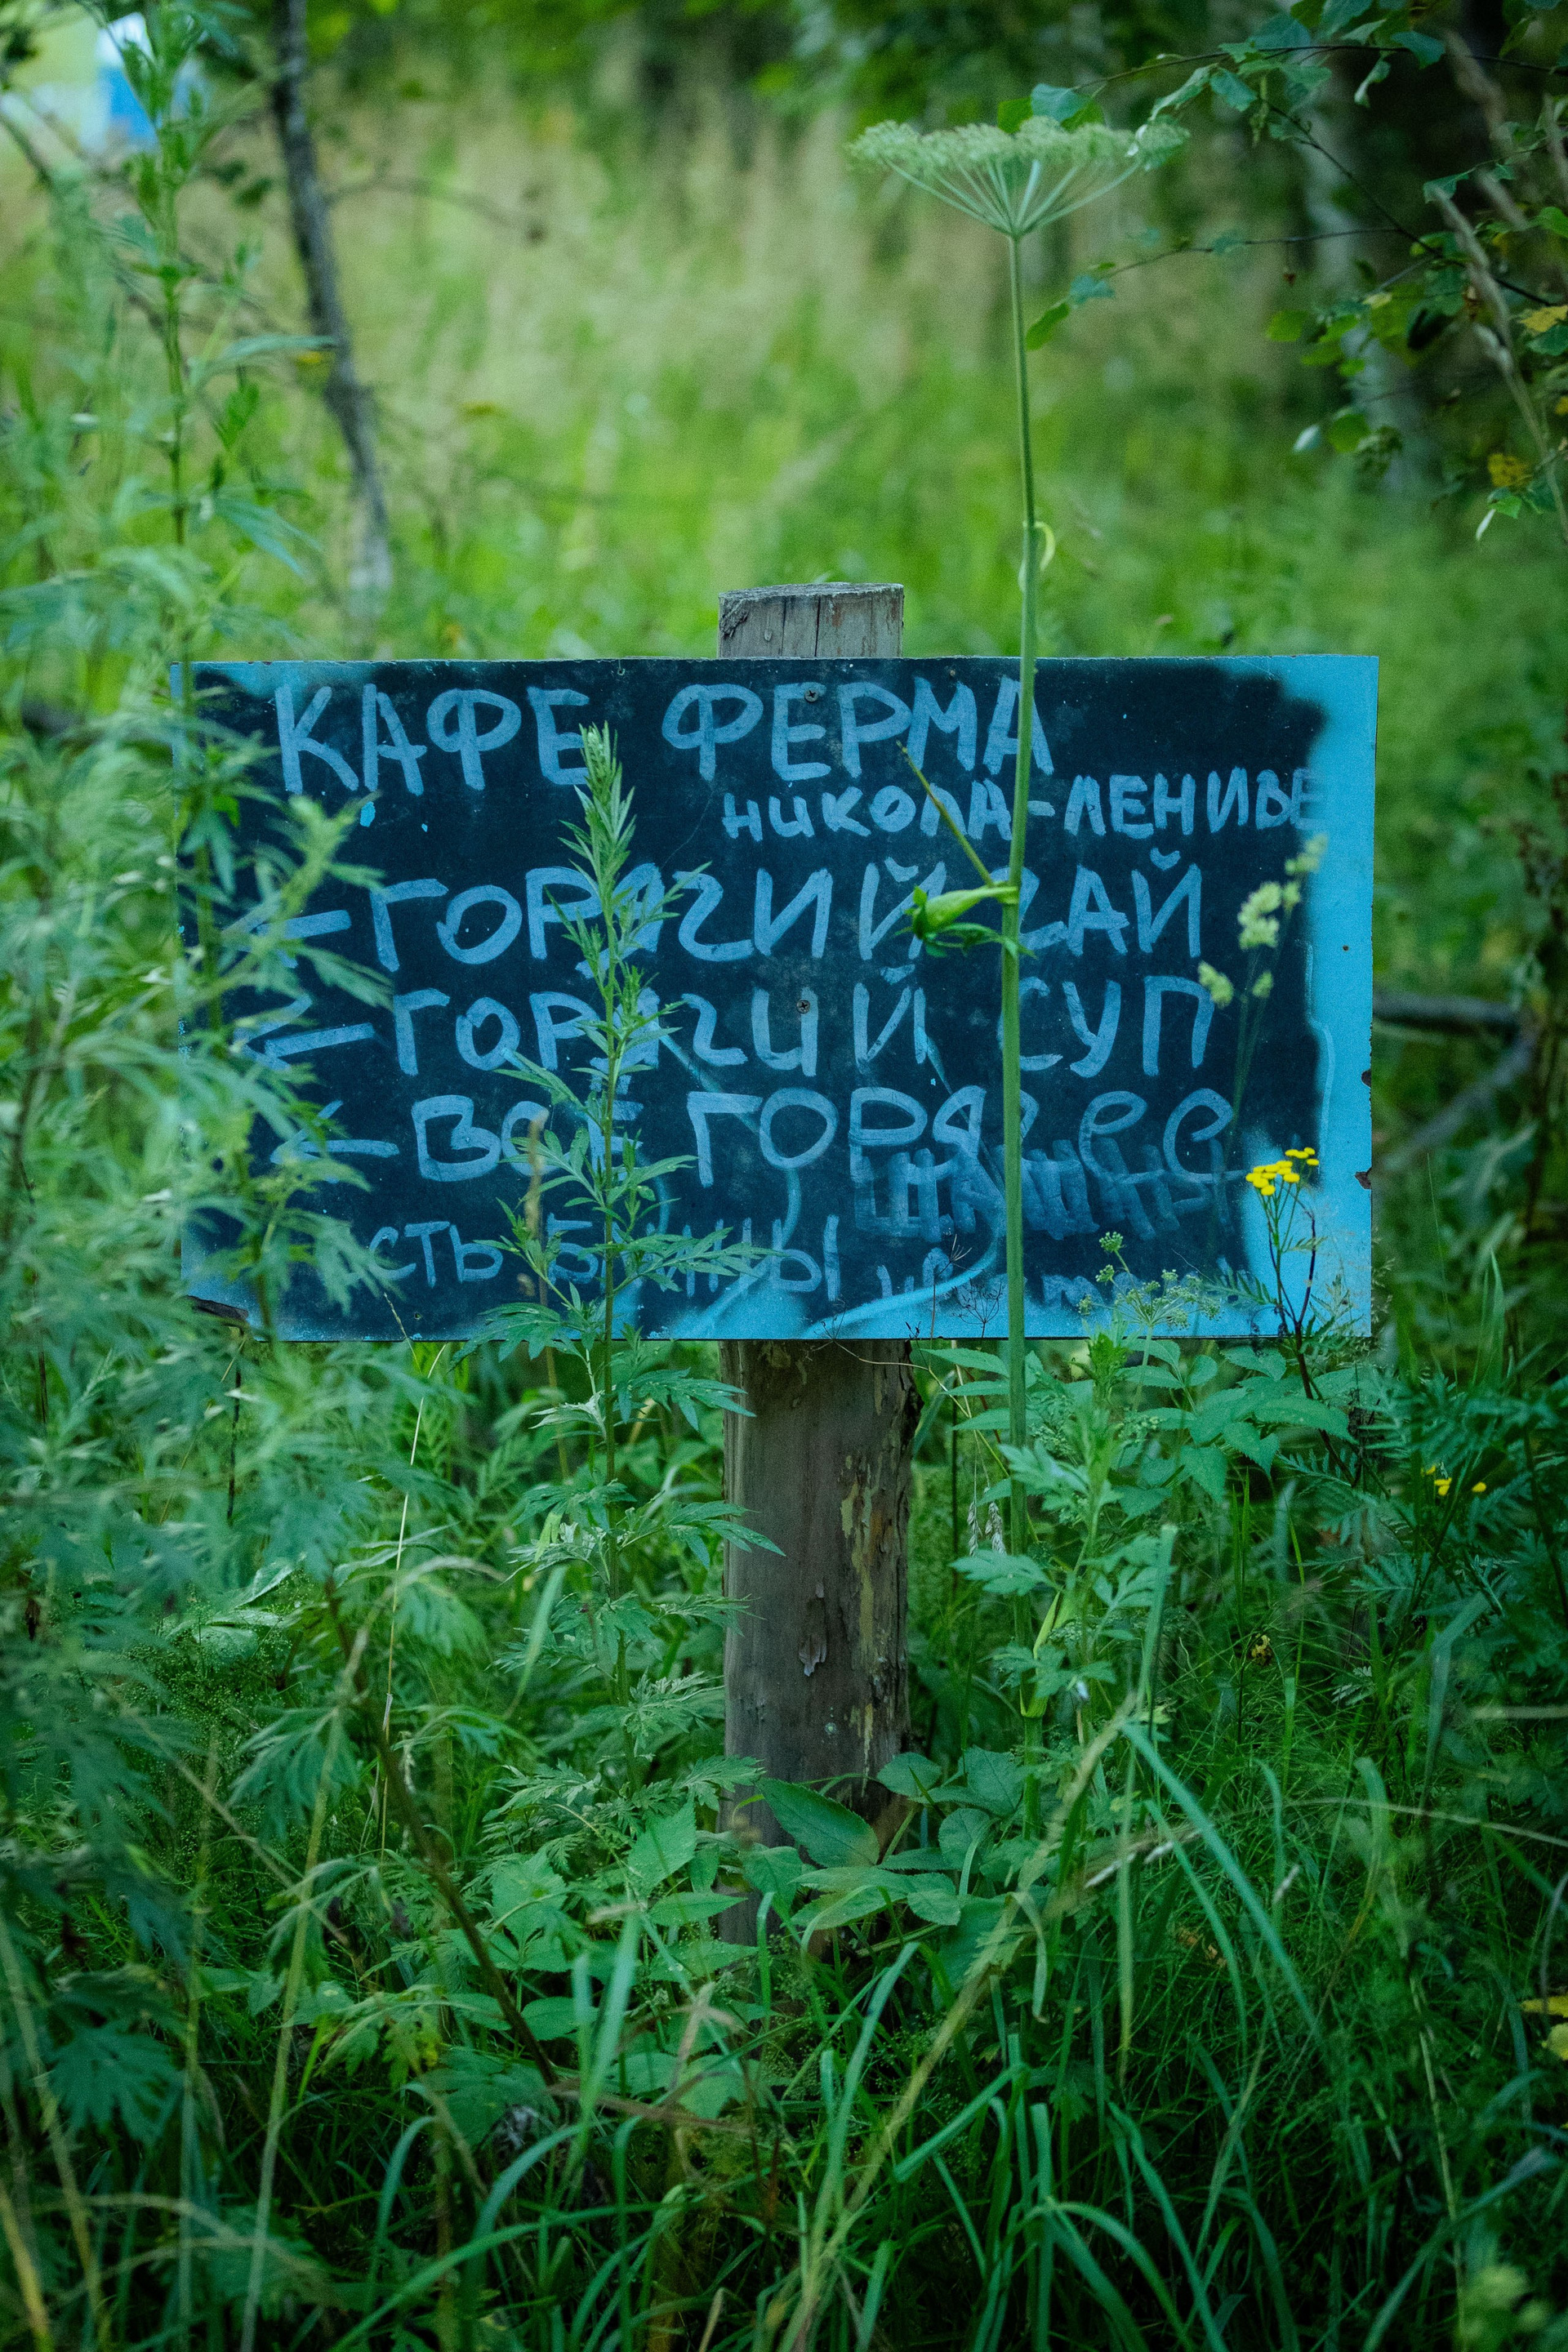 КАФЕ ФЕРМА
НИКОЛА-ЛЕНИВЕ
← ГОРЯЧИЙ ЧАЙ
← ГОРЯЧИЙ СУП
← ВСЕ ГОРЯЧЕЕ
ЕСТЬ БЛИНЫ